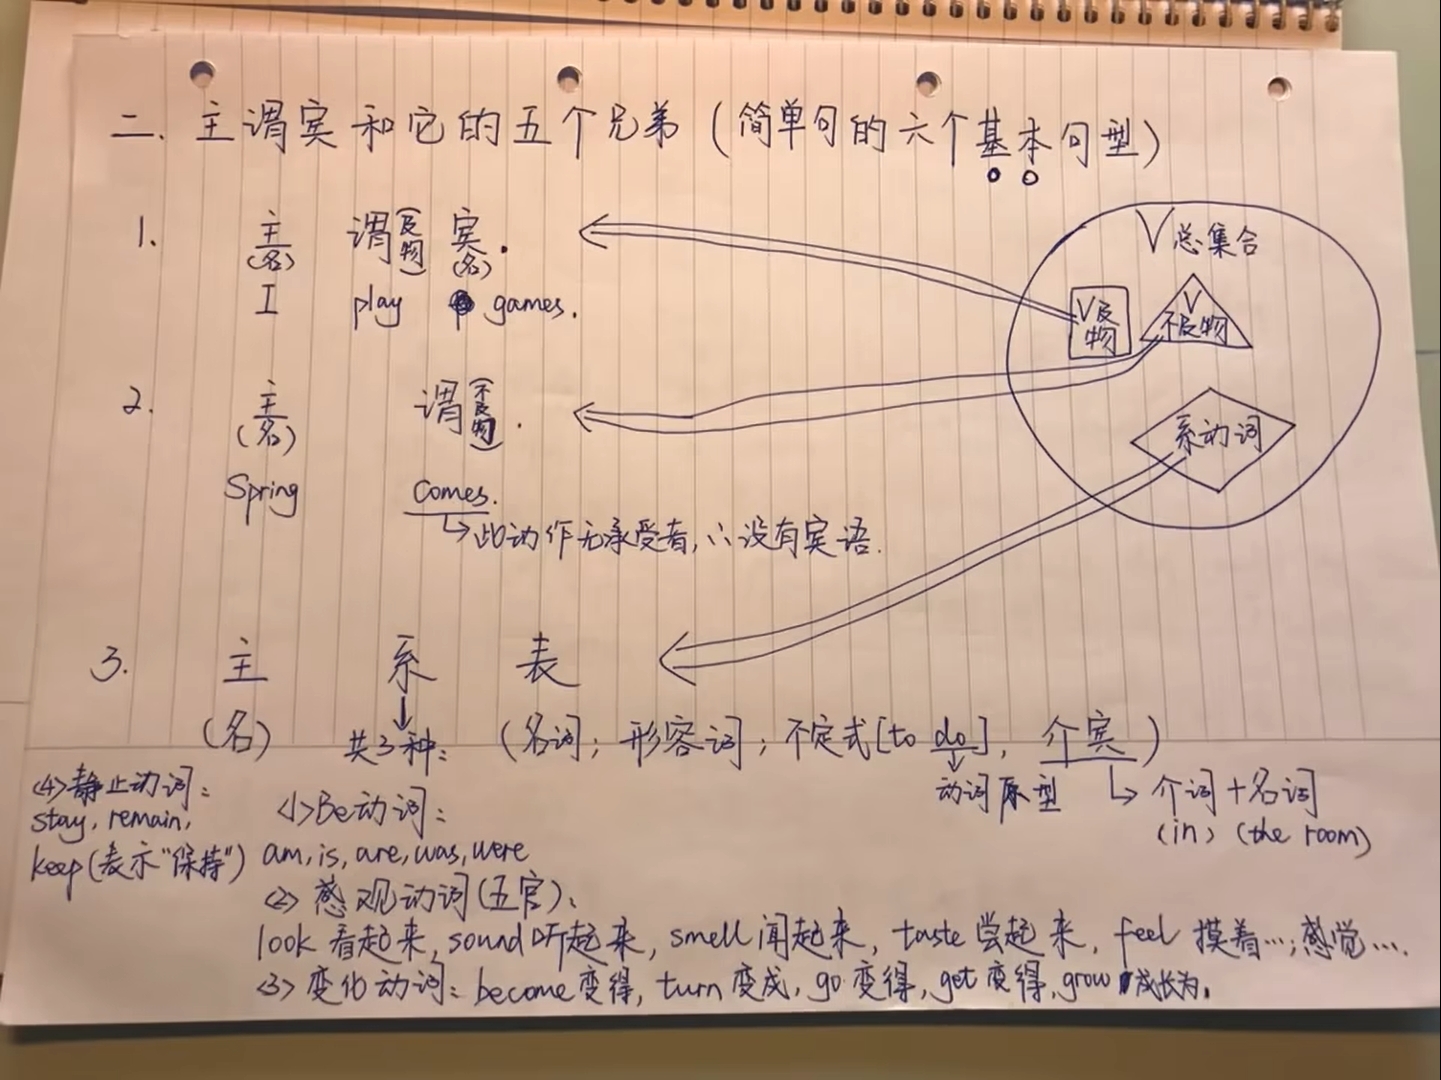 二. 主谓宾和它的五个兄弟(简单句的六个基本句型)
1. 主 谓(及物) 宾.
(名) (名)
I play games.
2. 主 谓(不及物).
(名)
Spring comes.
↳此动作无承受者,∴没有宾语.
V总集合
V及物
V不及物
系动词
3. 主 系 表
(名) 共3种: (名词; 形容词; 不定式[to do], 介宾)
动词原型 ↳ 介词+名词
(in) (the room)
<1>Be动词:
am, is, are, was, were
<2> 感观动词(五官):
look 看起来, sound 听起来, smell 闻起来, taste 尝起来, feel 摸着…; 感觉….
<3> 变化动词: become 变得, turn 变成, go 变得, get 变得, grow 成长为.
<4>静止动词:
stay, remain,
keep(表示"保持")